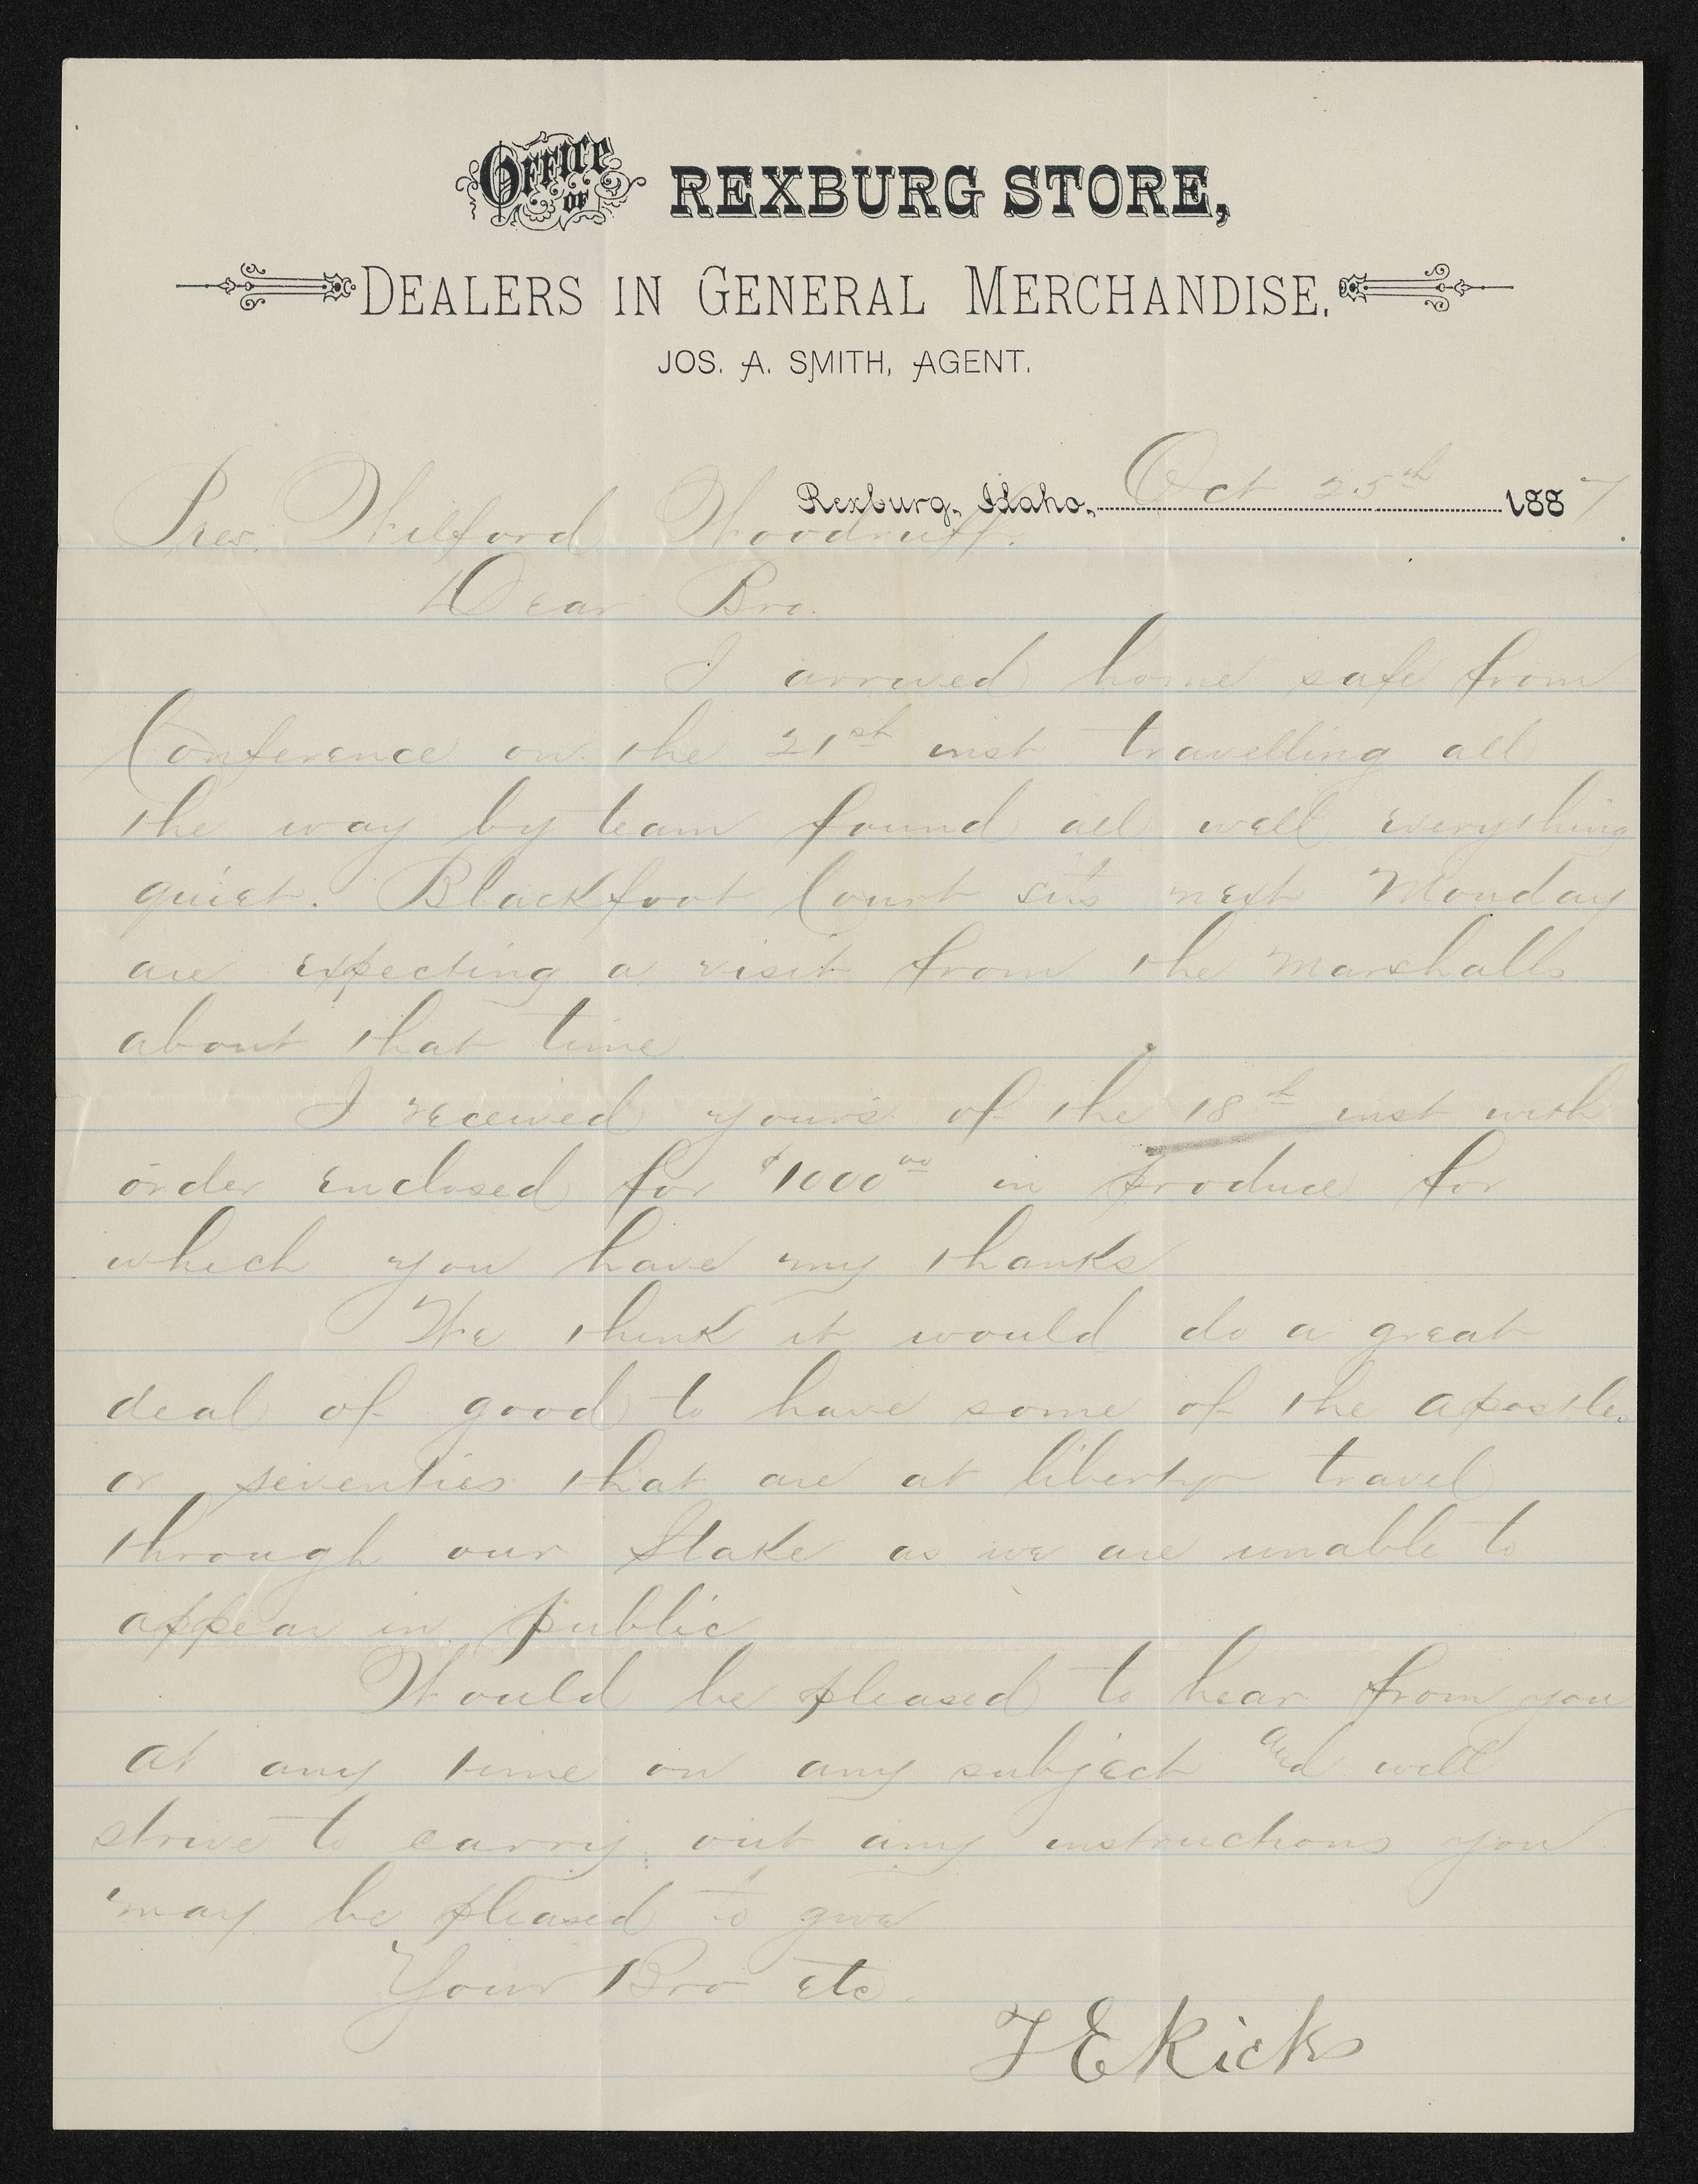 Office of REXBURG STORE,
DEALERS IN GENERAL MERCHANDISE.
JOS. A. SMITH, AGENT.
Rexburg, Idaho, Oct 25th 1887.
Pres. Wilford Woodruff.
Dear Bro.
I arrived home safe from
Conference on the 21st inst travelling all
the way by team found all well everything
quiet. Blackfoot Court sits next Monday
are expecting a visit from the Marshalls
about that time
I received yours of the 18th inst with
order enclosed for $1000.00 in produce for
which you have my thanks
We think it would do a great
deal of good to have some of the apostles
or seventies that are at liberty travel
through our Stake as we are unable to
appear in public
Would be pleased to hear from you
at any time on any subject and will
strive to carry out any instructions you
may be pleased to give
Your Bro etc.
T E Ricks